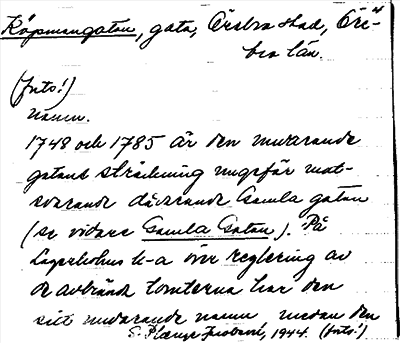 Köpmangatan, gata, Örebro stad, Öre-
bro län.
(foto!)
namn.
1748 och 1785 är den nuvarande
gatans sträckning ungefär mot-
svarande dåvarande Gamla gatan
(se vidare Gamla Gatan). På
Lagerholms k-a över reglering av
de avbrända tomterna har den
sitt nuvarande namn, medan den
1944. (foto!)